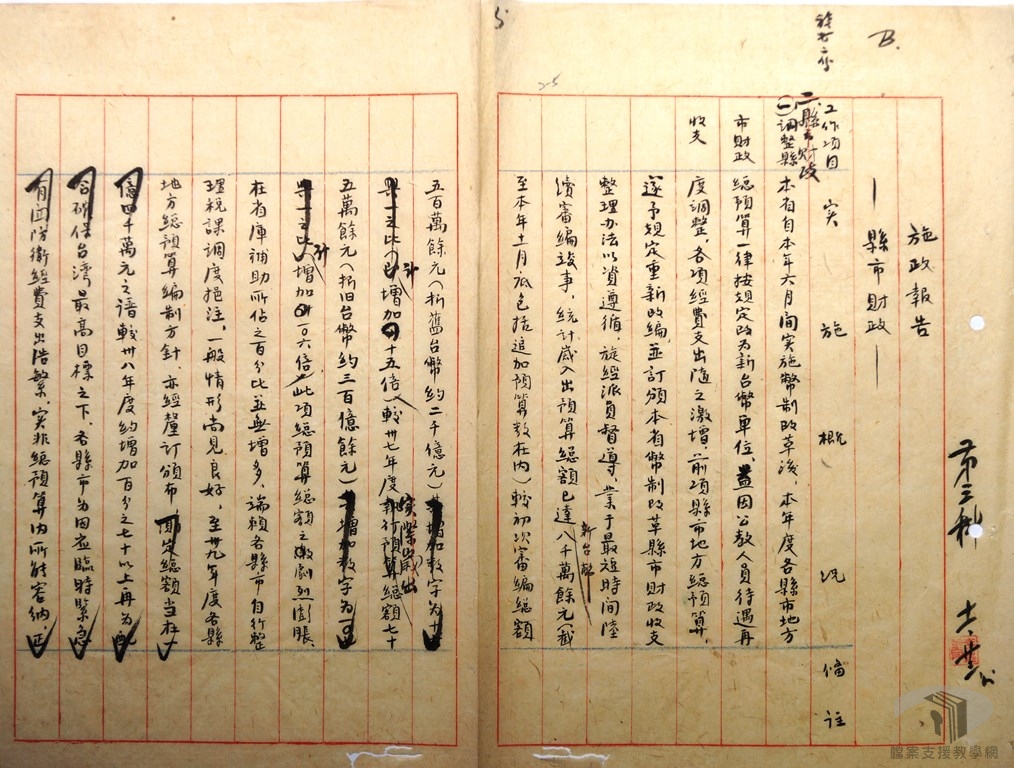 B.
施政報告
—縣市財政—
第三科
工作項目 實施概況 備註
二、縣市財政
(一)調整縣市財政收支
本省自本年六月間實施幣制改革後，本年度各縣市地方
總預算一律按規定改為新台幣單位，並因公教人員待遇再
度調整，各項經費支出隨之激增，前項縣市地方總預算，
遂予規定重新改編，並訂頒本省幣制改革縣市財政收支
整理办法以資遵循，旋經派員督導，業于最短時間陸
續審編竣事，統計歲入出預算總額已達新台幣八千萬餘元（截
至本年十一月底包括追加預算數在內）較初次審編總額
五百萬餘元（折舊台幣約二千億元）
計增加十五倍，較卅七年度實際歲出七十
五萬餘元（折旧台幣約三百億餘元）
計增加一〇六倍，此項總預算總額之激劇膨脹，
在省庫補助所佔之百分比並無增多，端賴各縣市自行整
理稅課調度挹注，一般情形尚見良好，至卅九年度各縣
地方總預算編制方針，亦經釐訂頒布，而定總額當在十
億四千萬元之譜較卅八年度約增加百分之七十以上再為配
合確保台灣最高目標之下，各縣市為因應臨時緊急
有面防衛經費支出浩繁，實非總預算內所能容納
檔案支援教學網